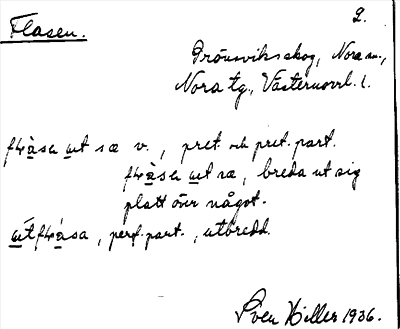 2.
Flasen.
Grönsviksskog, Nora sn.,
Nora tg., Västernorrl. l.
flàsen ut sæ v., pret. och pret. part.
flàsen ut sæ, breda ut sig
platt över något.
útflása, perf. part., utbredd.
Sven Hiller 1936.